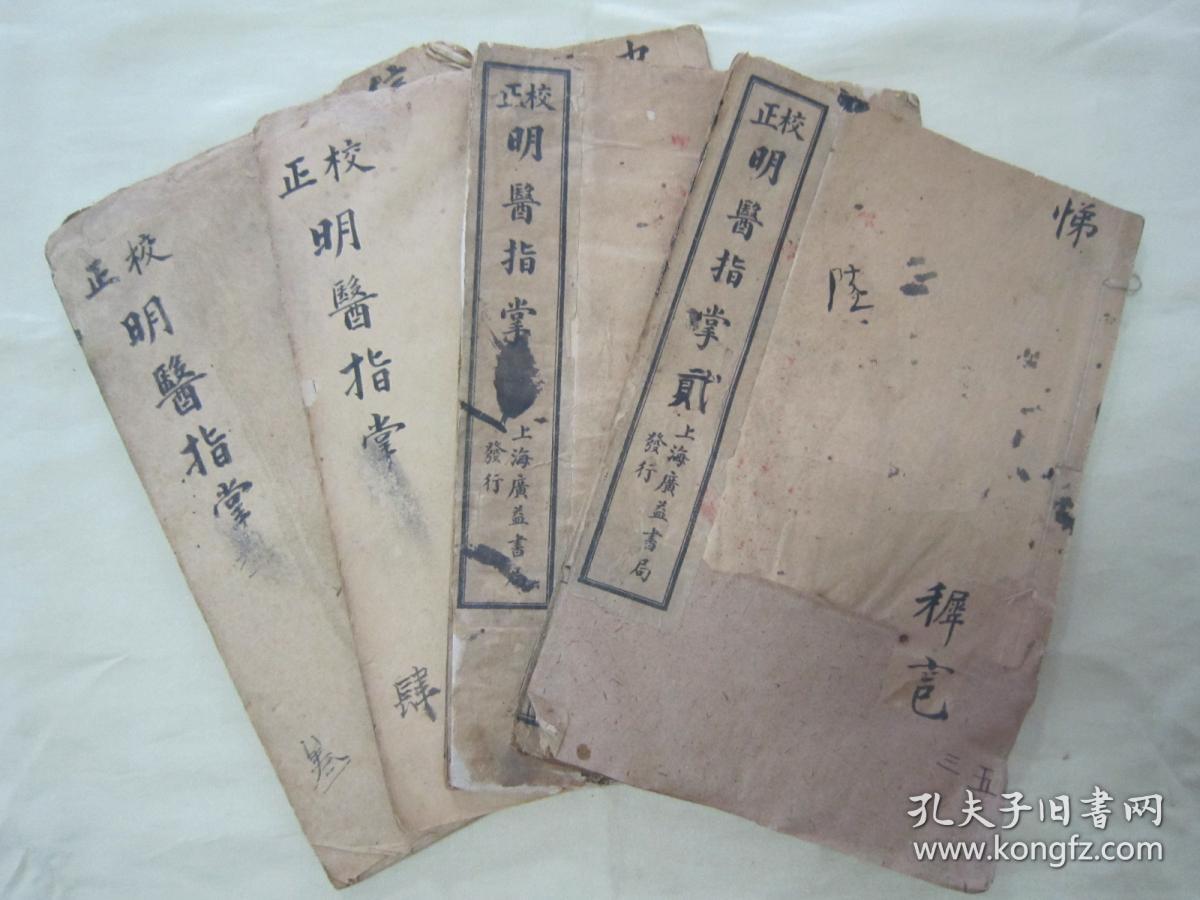 校正
明醫指掌
叁
校正
明醫指掌
肆
校正
明醫指掌
上海廣益書局
發行
校正
明醫指掌貳
上海廣益書局
發行
悌
三
五
三
孔夫子旧书网
www.kongfz.com